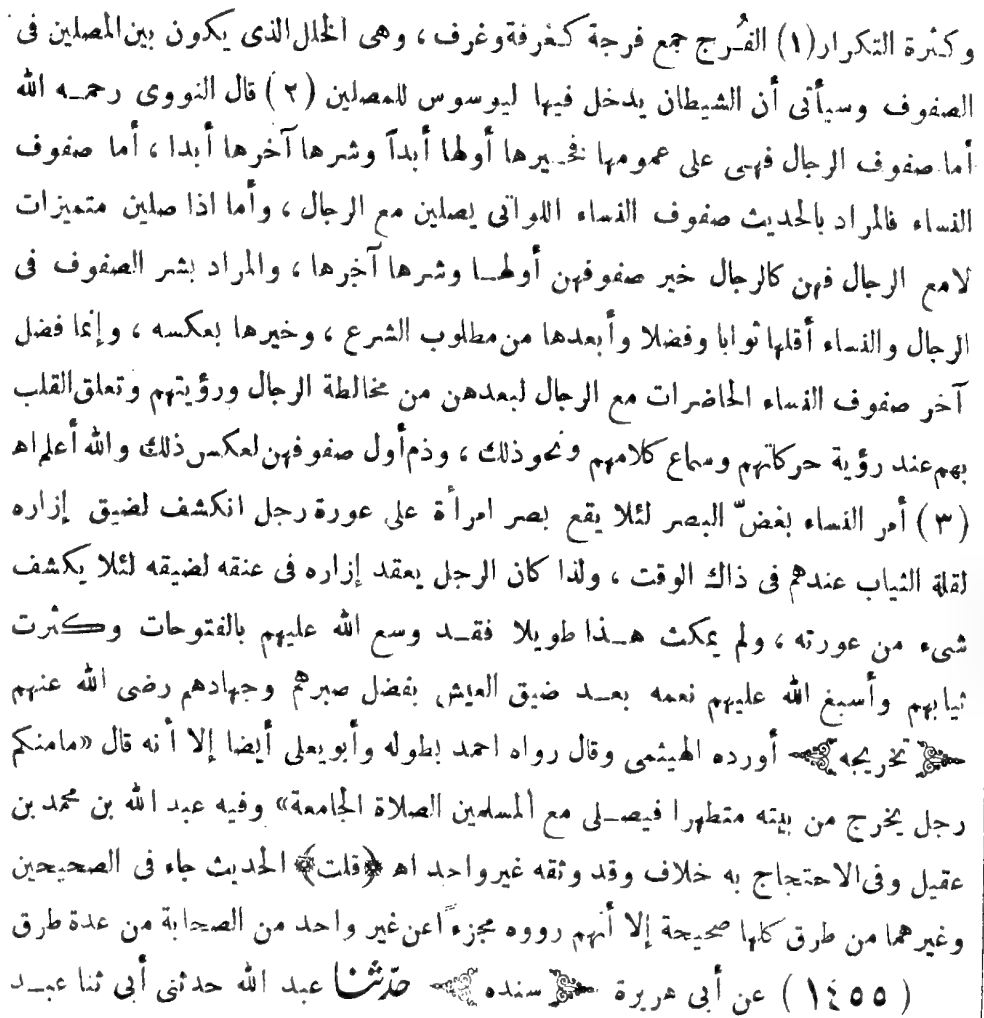 وكثرة التكرار (١) الفُرج جمع فرجة كغرفة وغرف ، وهى الخلل الذى يكون بين المصلين فى
الصفوف وسيأتى أن الشيطان يدخل فيها ليوسوس للمصلين (٢) قال النووى رحمه الله
أما صفوف الرجال فهى على عمومها فخيرها أولها أبداً وشرها آخرها أبدا ، أما صفوف
النساء فالمراد بالحديث صفوف النساء اللواتى يصلين مع الرجال ، وأما اذا صلين متميزات
لامع الرجال فهن كالرجال خير صفوفهن أولها وشرها آخرها ، والمراد بشر الصفوف فى
الرجال والنساء أقلها ثوابا وفضلا وأبعدها من مطلوب الشرع ، وخيرها بعكسه ، وإنما فضل
آخر صفوف النساء الحاضرات مع الرجال لبعدهن من مخالطة الرجال ورؤيتهم وتعلق القلب
بهم عند رؤية حركاتهم وسماع كلامهم ونحو ذلك ، وذم أول صفوفهن لعكس ذلك والله أعلم اه
(٣) أمر النساء بغضّ البصر لئلا يقع بصر امرأة على عورة رجل انكشف لضيق إزاره
لقلة الثياب عندهم فى ذاك الوقت ، ولذا كان الرجل يعقد إزاره فى عنقه لضيقه لئلا يكشف
شىء من عورته ، ولم يمكث هذا طويلا فقد وسع الله عليهم بالفتوحات وكثرت
ثيابهم وأسبغ الله عليهم نعمه بعد ضيق العيش بفضل صبرهم وجهادهم رضى الله عنهم
﴿تخريجه﴾ أورده الهيثمى وقال رواه احمد بطوله وأبو يعلى أيضا إلا أنه قال «مامنكم
رجل يخرج من بيته متطهرا فيصلى مع المسلمين الصلاة الجامعة» وفيه عبد الله بن محمد بن
عقيل وفى الاحتجاج به خلاف وقد وثقه غير واحد اه ﴿قلت﴾ الحديث جاء فى الصحيحين
وغيرهما من طرق كلها صحيحة إلا أنهم رووه مجزءًا عن غير واحد من الصحابة من عدة طرق
(١٤٥٥) عن أبى هريرة ﴿سنده﴾ حدّثنا عبد الله حدثنى أبى ثنا عبد